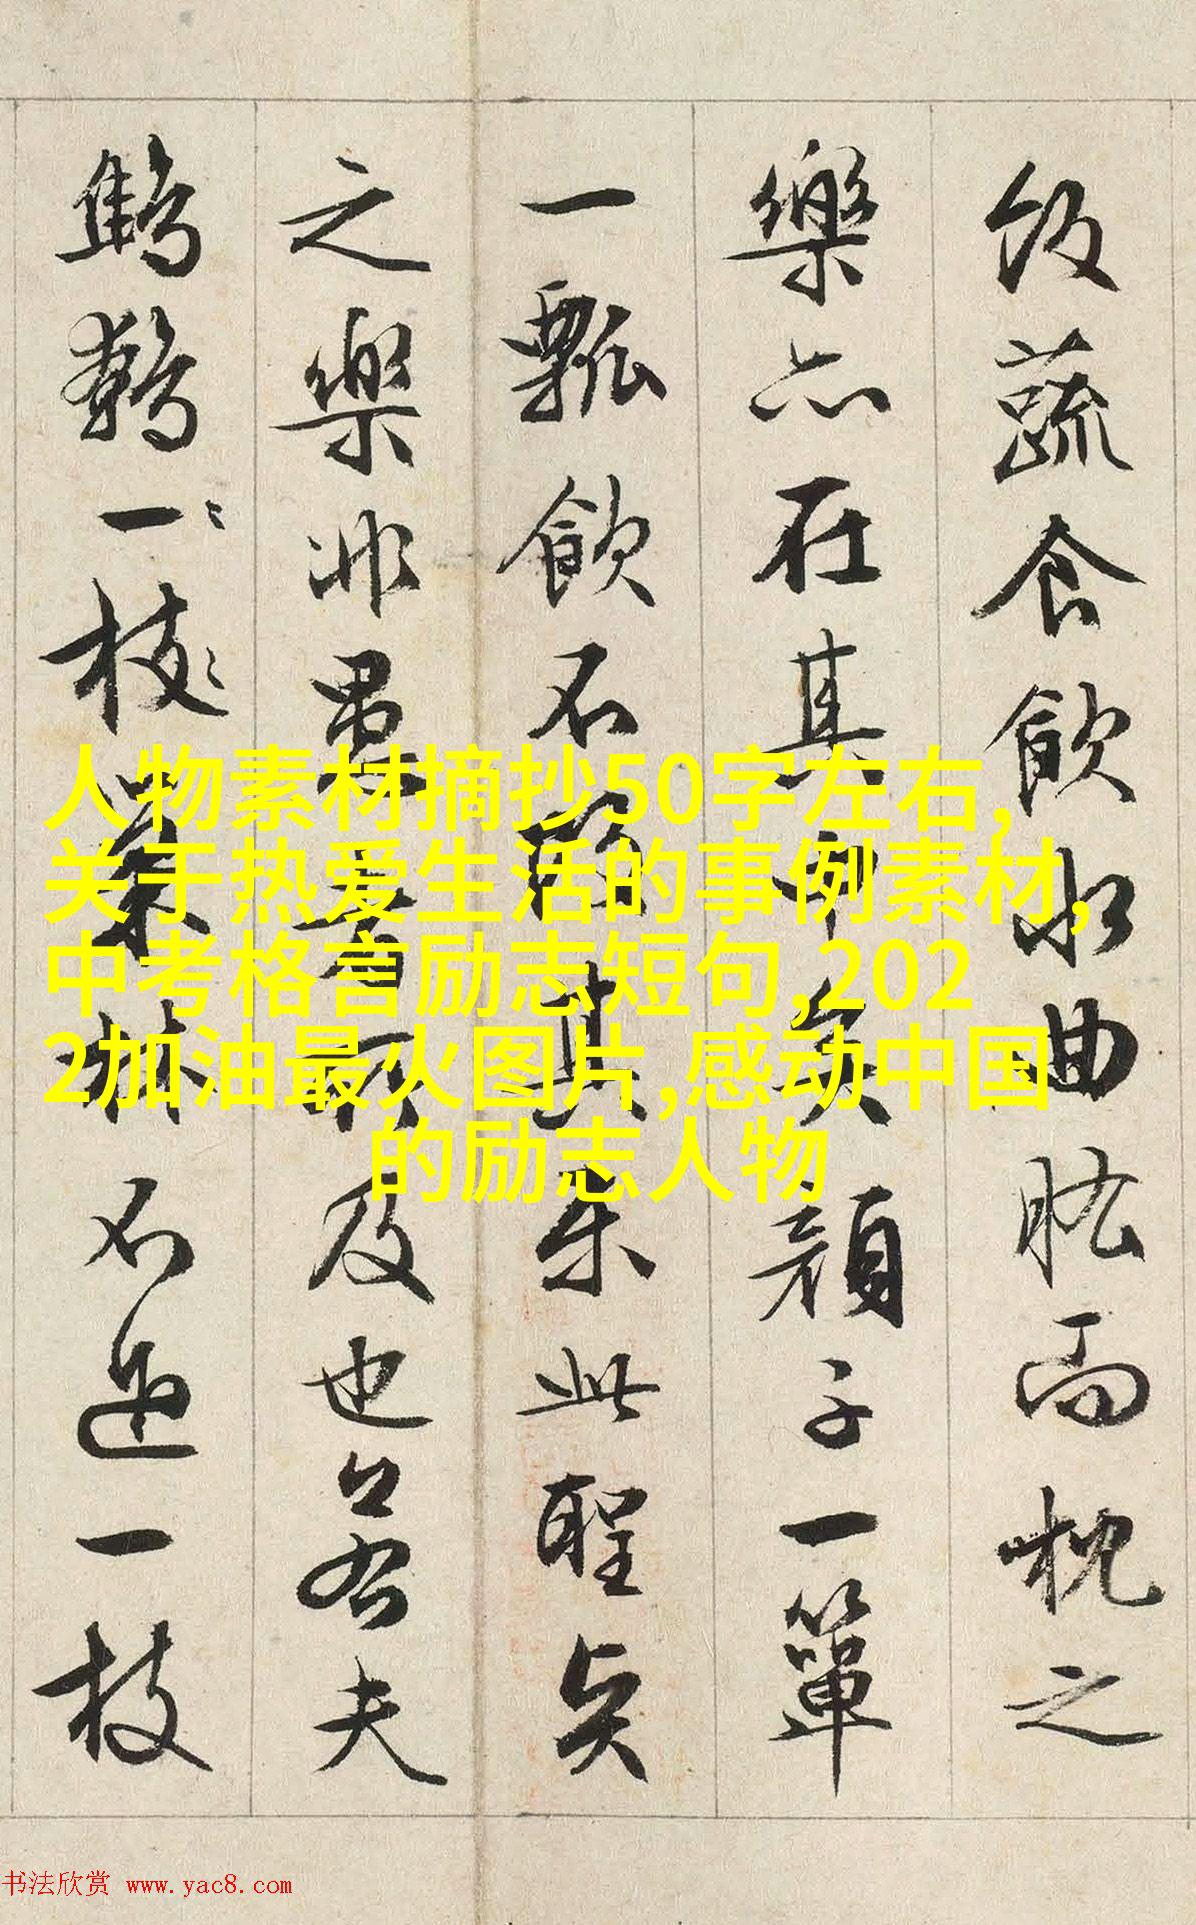 飯蔬食飲水曲肱而枕之
樂亦在其中矣顏子一簞
一瓢飲不改其樂此聖賢
之樂非愚者所及也若夫
鷦鷯一枝巢林不過一枝
人物素材摘抄50字左右,
关于热爱生活的事例素材,
中考格言励志短句,202
2加油最火图片,感动中国
的励志人物
书法欣赏 www.yac8.com